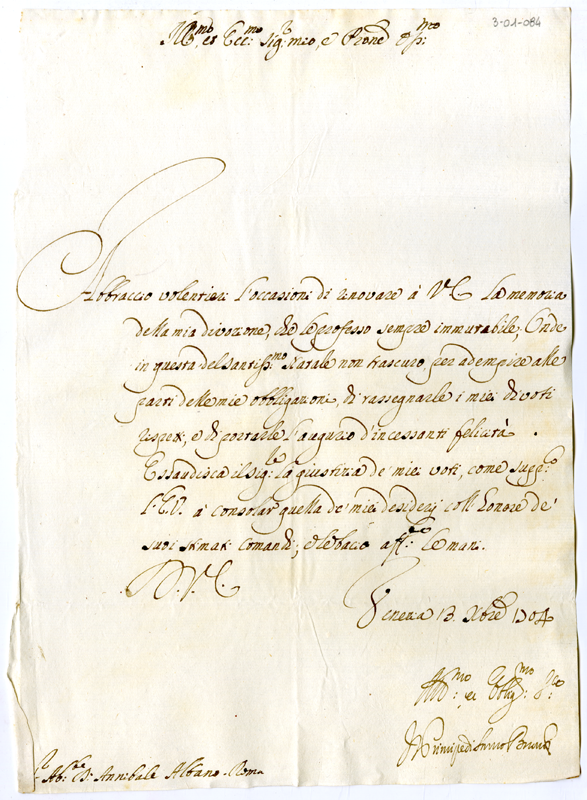 3-01-084
Ill.mo et Ecc.mo Sig.r mio, e Prone
Abbraccio volentieri l'occasioni di rinovare à V.E. la memoria
della mia divozione, che le professo sempre immutabile; Onde
in questa del Santiss.mo Natale non trascuro, per adempire alle
parti delle mie obbligazioni, di rassegnarle i miei divoti
rispetti, e di portarle l'augurio d'incessanti felicità.
Essaudisca il Sig.re la giustizia de' miei voti, come supp.co
l'E.V. à consolar quella de' miei desiderij coll'honore de'
suoi stimati comandi, e le bacio aff.te le mani.
D. V. E.
13. Xbre 1704
et Obbg.mo
Il Principe di
Ab.te D. Annibale Albano - Roma